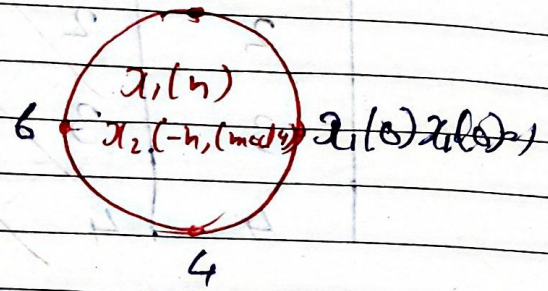 x₁(n)
6 x₂(-n,(mod4)) x₁(0)x₁(0)
4